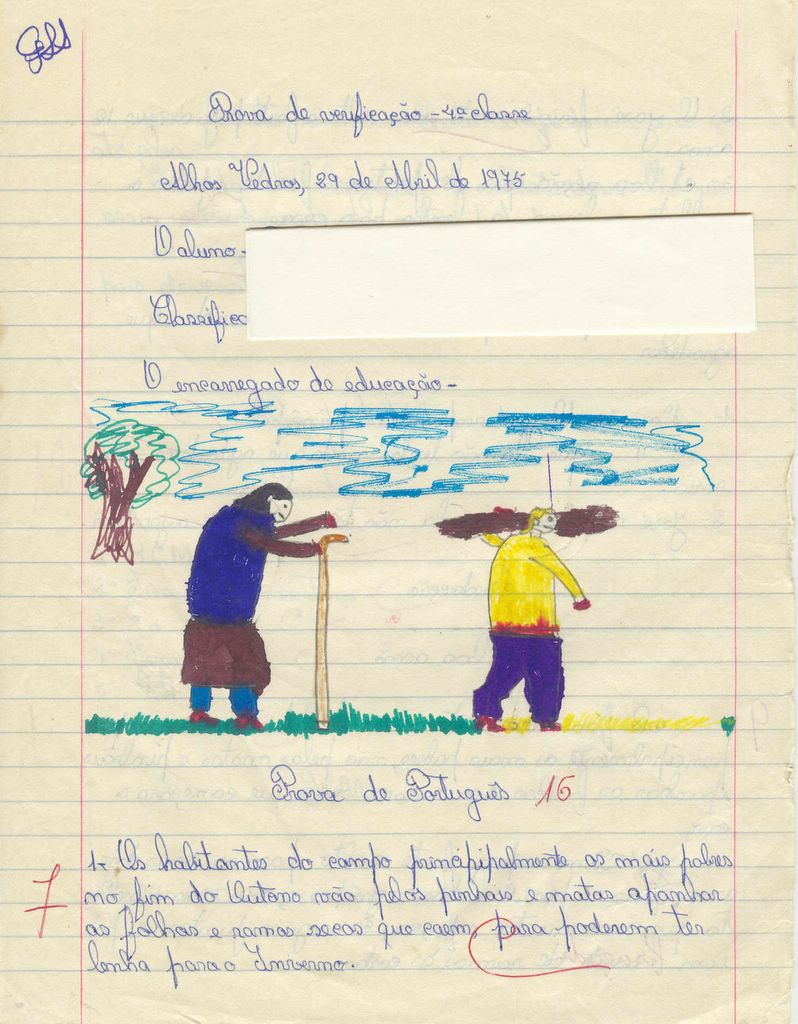 Prova de verificação - 4ª classe
Alhos Vedros, 29 de Abril de 1975
O aluno -
Classifica
O encarregado de educação -
Prova de Português 16
7
1- Os habitantes do campo principipalmente os mais pobres
no fim do Outono vão pelos pinhais e matas apanhar
as folhas e ramos secos que caem, para poderem ter
lenha para o Inverno.